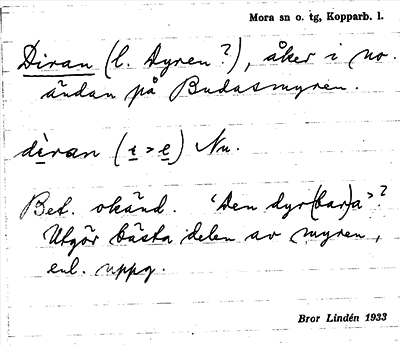 Mora sn o. tg, Kopparb. l.
Diran (l. Dyren?), åker i no.
ändan på Budasmyren.
dìran (i > e) Nu.
Bet. okänd. 'Den dyr(bar)a'?
Utgör bästa delen av myren,
enl. uppg.
Bror Lindén 1933